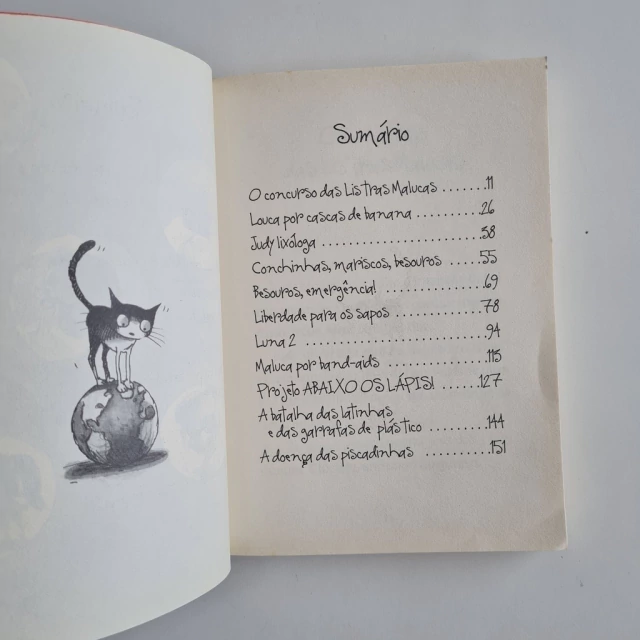 Sumário
O concurso das Listras Malucas .......11
Louca por cascas de banana ..........26
Judy lixóloga .......................58
Conchinhas, mariscos, besouros .....55
Besouros, emergência! ..............69
Liberdade para os sapos ............78
Luna 2 .............................94
Maluca por band-aids ..............115
Projeto ABAIXO OS LÁPIS! ......127
A batalha das latinhas
e das garrafas de plástico .........144
A doença das piscadinhas ..........151